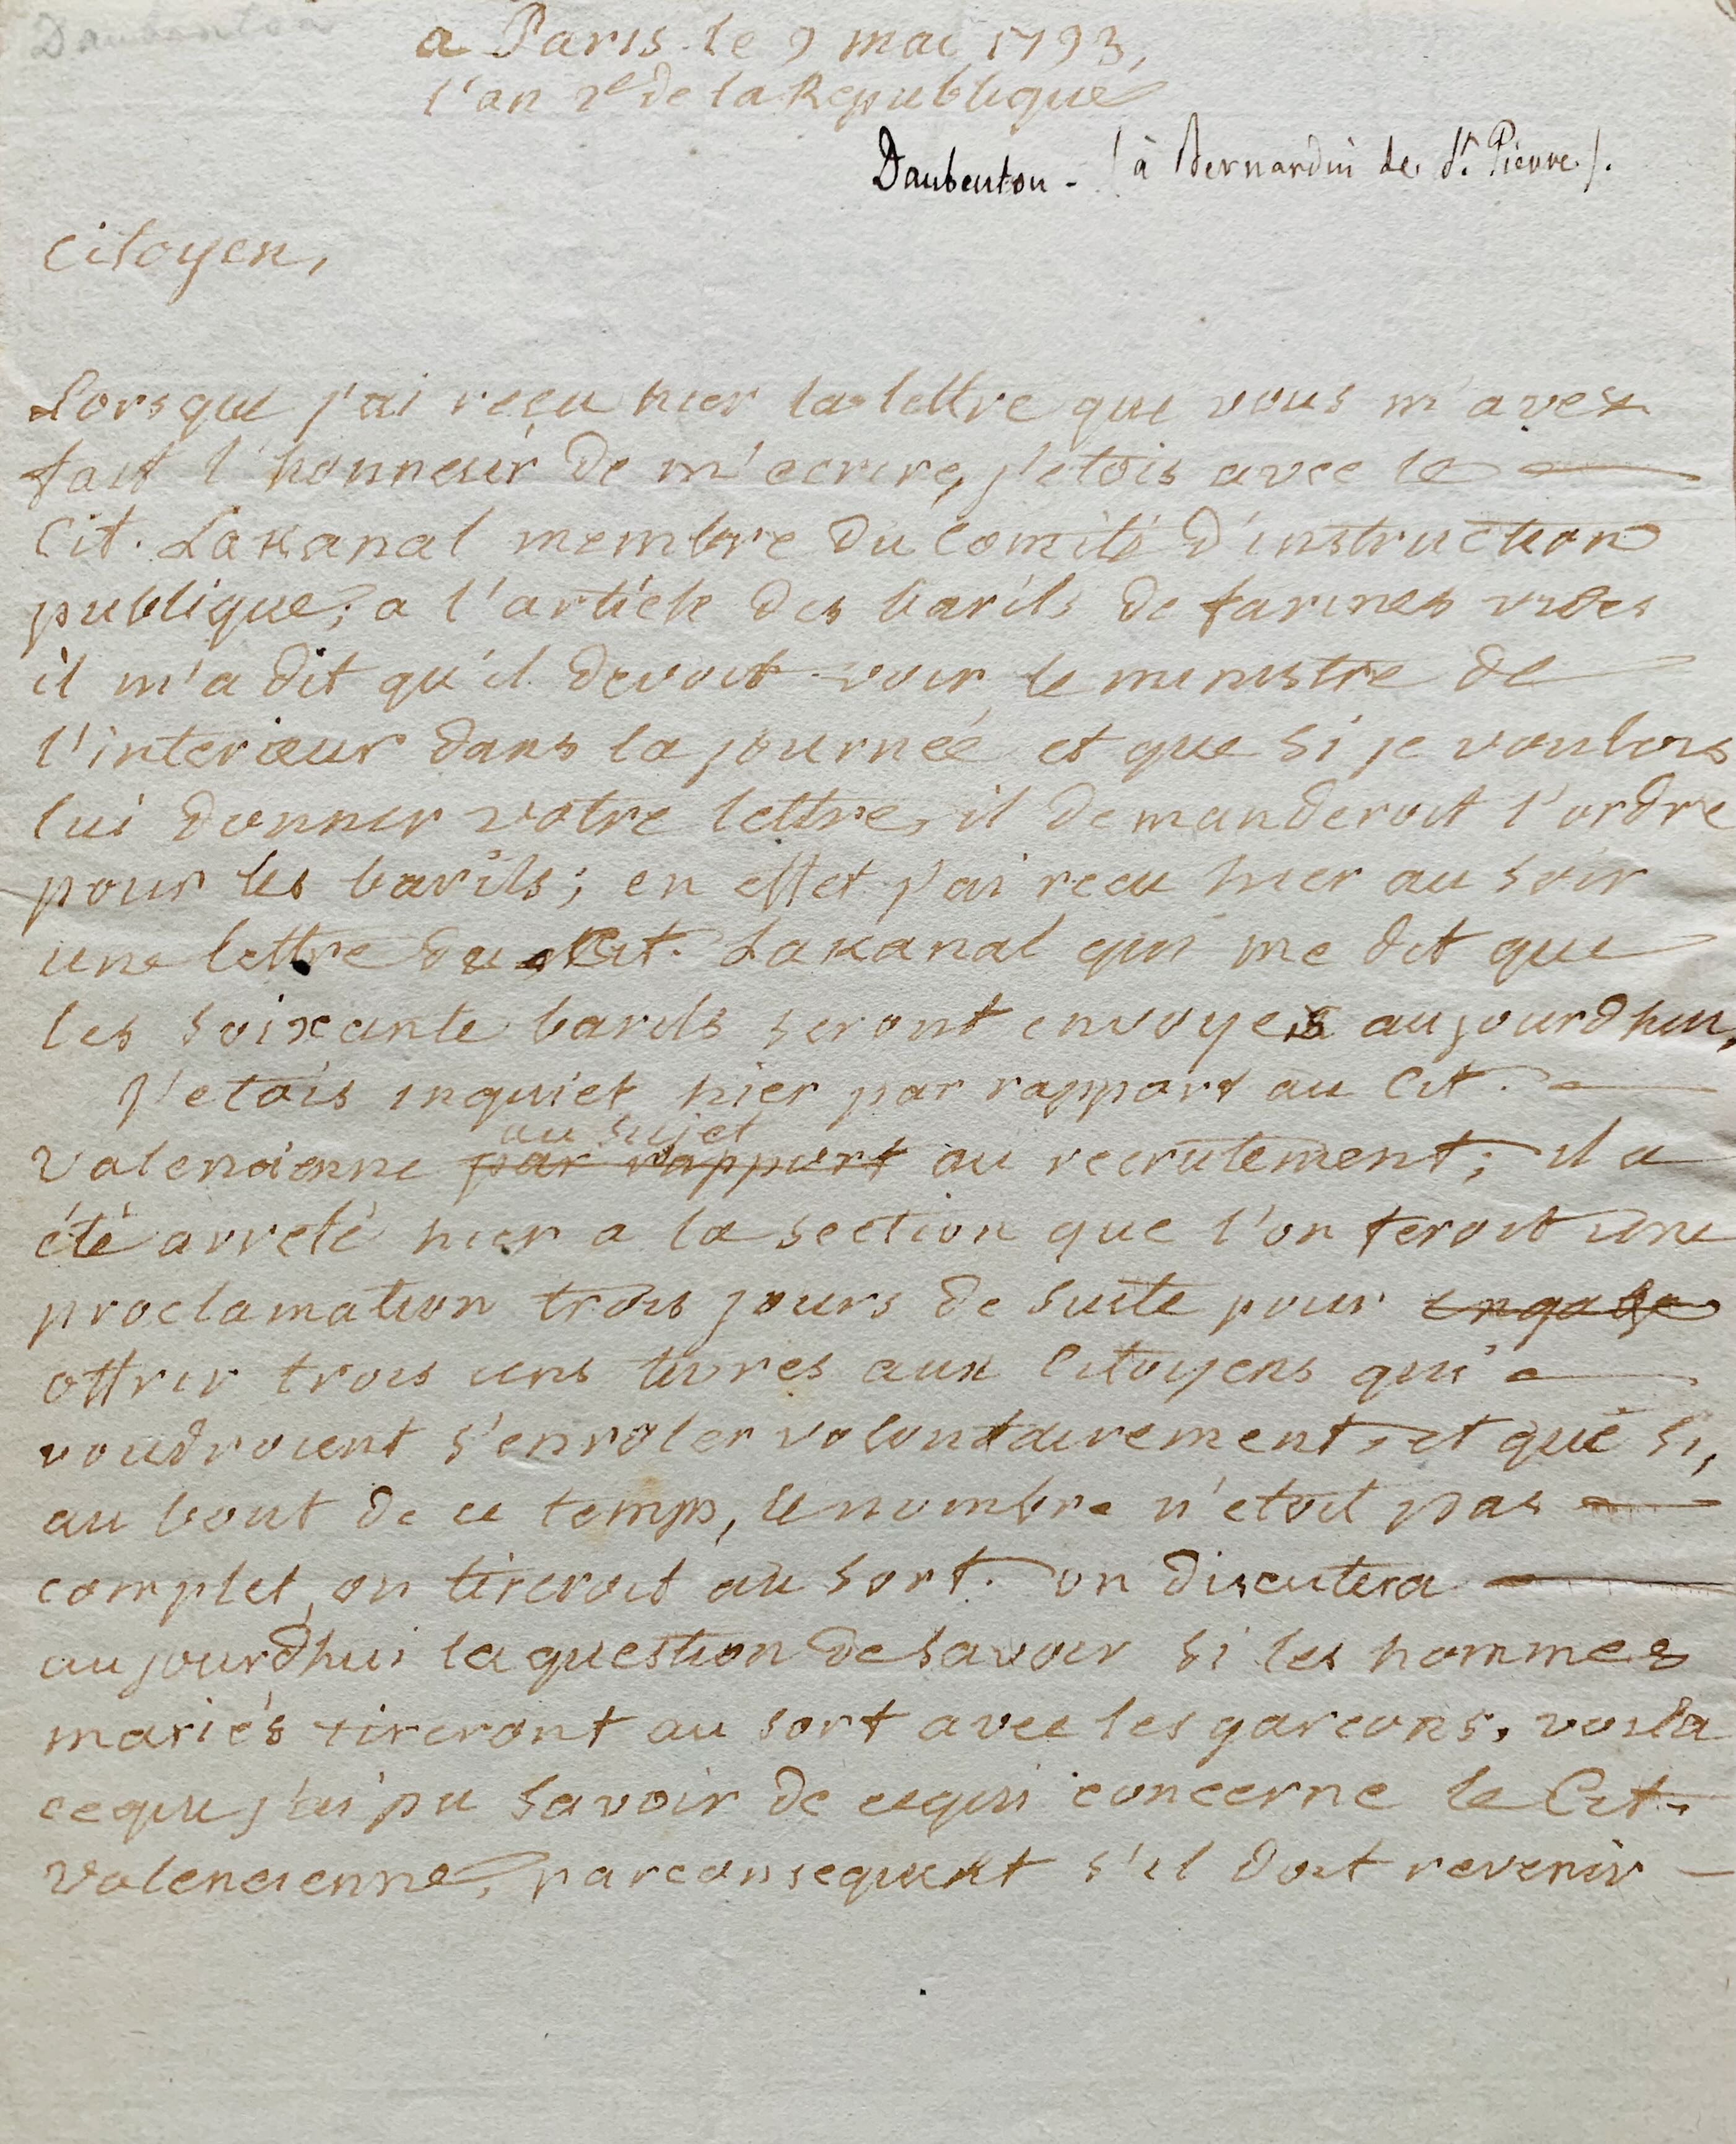 Daubenton
a Paris le 9 mai 1793,
l'an 2e de la Republique
Daubenton - (à Bernardin de St. Pierre).
Citoyen,
Lorsque j'ai reçu hier la lettre que vous m'avez
fait l'honneur de m'ecrire, j'etois avec le
Cit. Lakanal membre du Comité d'instruction
publique; a l'article des barils de farines vides
il m'a dit qu'il devoit voir le ministre de
l'interieur dans la journée et que si je voulois
lui donner votre lettre, il demanderoit l'ordre
pour les barils; en effet j'ai recu hier au soir
une lettre du Cit. Lakanal qui me dit que
les soixante barils seront envoyes aujourdhui,
J'etois inquiet hier par rapport au Cit.
au sujet
Valencienne par rapport au recrutement; il a
été arreté hier a la section que l'on feroit une
proclamation trois jours de suite pour engage
offrir trois cens livres aux Citoyens qui
voudroient s'enroler volontairement, et que si,
au bout de ce temps, le nombre n'etoit pas
complet, on tireroit au sort. on discutera
aujourdhui la question de savoir si les hommes
mariés tireront au sort avec les garcons. voila
ce que j'ai pu savoir de ce qui concerne le Cit.
Valencienne, par consequent s'il doit revenir